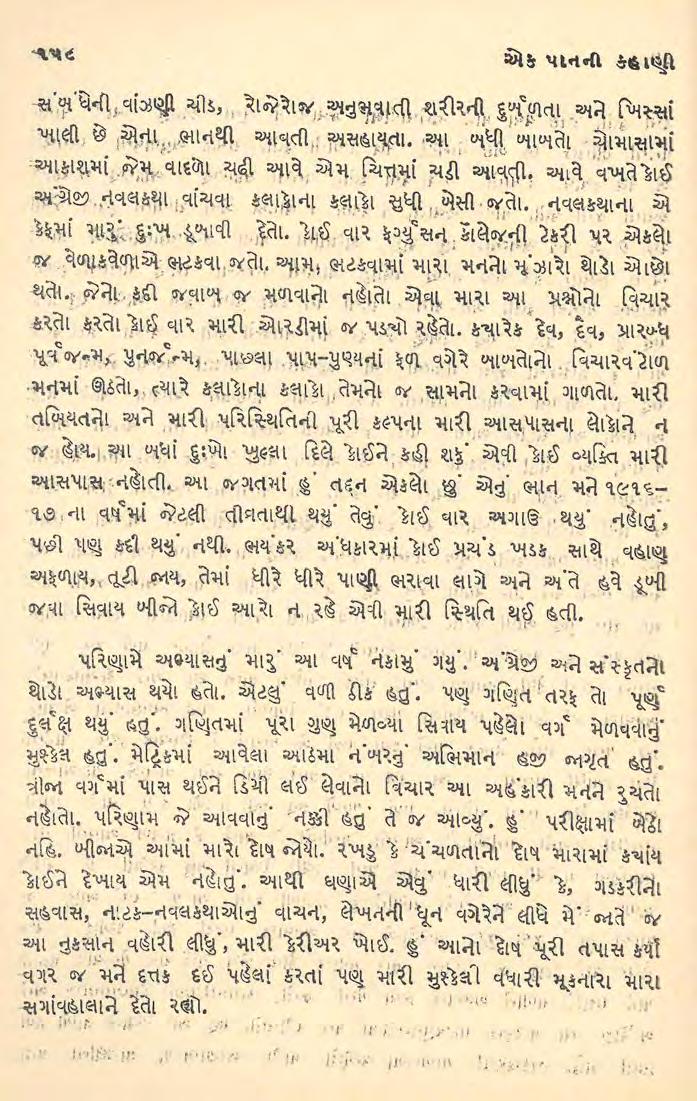 ૧૫૮ એક પાનની કહાણી
સંબંધેની વાંઝણી ચીડ, રોજેરોજ અનુભવાતી શરીરની દુર્બળતા અને ખિસ્સાં
ખાલી છે એના ભાનથી આવતી અસહાયતા. આ બધી બાબતો ચોમાસામાં
આકાશમાં જેમ વાદળો ચઢી આવે એમ ચિત્તમાં ચઢી આવતી. આવે વખતે કોઈ
અંગ્રેજી નવલકથા વાંચવા કલાકોના કલાકો સુધી બેસી જતો. નવલકથાના એ
કેફમાં મારું દુઃખ ડૂબાવી દેતો. કોઈ વાર ફર્ગ્યુસન કૉલેજની ટેકરી પર એકલો
જ વેળાકવેળાએ ભટકવા જતો. આમ, ભટકવામાં મારા મનનો મૂંઝારો થોડો ઓછો
થતો. જેનો કદી જવાબ જ મળવાનો નહોતો એવા મારા આ પ્રશ્નોનો વિચાર
કરતો કરતો કોઈ વાર મારી ઓરડીમાં જ પડ્યો રહેતો. ક્યારેક દેવ, દૈવ, પ્રારબ્ધ
પૂર્વજન્મ, પુનર્જન્મ, પાછલા પાપ-પુણ્યનાં ફળ વગેરે બાબતોનો વિચારવંટોળ
મનમાં ઊઠતો, ત્યારે કલાકોના કલાકો તેમનો જ સામનો કરવામાં ગાળતો. મારી
તબિયતનો અને મારી પરિસ્થિતિની પૂરી કલ્પના મારી આસપાસના લોકોને ન
જ હોય. આ બધાં દુઃખો ખુલ્લા દિલે કોઈને કહી શકું એવી કોઈ વ્યક્તિ મારી
આસપાસ નહોતી. આ જગતમાં હું તદ્દન એકલો છું એનું ભાન મને ૧૯૧૬-
૧૭ ના વર્ષમાં જેટલી તીવ્રતાથી થયું તેવું કોઈ વાર અગાઉ થયું નહોતું,
પછી પણ કદી થયું નથી. ભયંકર અંધકારમાં કોઈ પ્રચંડ ખડક સાથે વહાણ
અફળાય, તૂટી જાય, તેમાં ધીરે ધીરે પાણી ભરાવા લાગે અને અંતે હવે ડૂબી
જવા સિવાય બીજો કોઈ આરો ન રહે એવી મારી સ્થિતિ થઈ હતી.
પરિણામે અભ્યાસનું મારું આ વર્ષ નકામું ગયું. અંગ્રેજી અને સંસ્કૃતનો
થોડો અભ્યાસ થયો હતો. એટલું વળી ઠીક હતું. પણ ગણિત તરફ તો પૂર્ણ
દુર્લક્ષ થયું હતું. ગણિતમાં પૂરા ગુણ મેળવ્યા સિવાય પહેલો વર્ગ મેળવવાનું
મુશ્કેલ હતું. મેટ્રિકમાં આવેલા આઠમા નંબરનું અભિમાન હજી જાગૃત હતું.
ત્રીજા વર્ગમાં પાસ થઈને ડિગ્રી લઈ લેવાનો વિચાર આ અહંકારી મનને રુચતો
નહોતો. પરિણામ જે આવવાનું નક્કી હતું તે જ આવ્યું. હું પરીક્ષામાં બેઠો
નહિ. બીજાએ આમાં મારો દોષ જોયો. રખડુ કે ચંચળતાનો દોષ મારામાં ક્યાંય
કોઈને દેખાય એમ નહોતું. આથી ઘણાએ એવું ધારી લીધું કે, ગડકરીનો
સહવાસ, નાટક-નવલકથાઓનું વાચન, લેખનની ધૂન વગેરેને લીધે મેં જાતે જ
આ નુકસાન વહોરી લીધું, મારી કેરીઅર ખોઈ. હું આનો દોષ પૂરી તપાસ કર્યા
વગર જ મને દત્તક દઈ પહેલાં કરતાં પણ મારી મુશ્કેલી વધારી મૂકનારા મારા
સગાંવહાલાને દેતો રહ્યો.